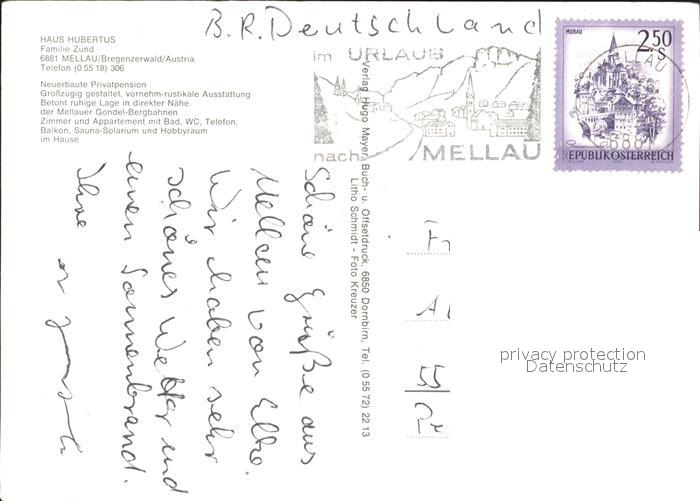 B.R. Deutschland
HAUS HUBERTUS
Familie Zund
6881 MELLAU/Bregenzerwald/Austria
Telefon (0 55 18) 306
Neuerbaute Privatpension
Großzügig gestaltet, vornehm-rustikale Ausstattung
Betont ruhige Lage in direkter Nähe
der Mellauer Gondel-Bergbahnen
Zimmer und Appartement mit Bad, WC, Telefon,
Balkon, Sauna-Solarium und Hobbyraum
im Hause
im URLAUB
nach MELLAU
MELLAU
6881
MURAU
2.50
S
REPUBLIK ÖSTERREICH
Verlag Hugo Mayer, Buch- u. Offsetdruck, 6850 Dornbirn, Tel. (0 55 72) 22 13
Litho Schmidt - Foto Kreuzer
Schöne Grüße aus
Mellau von Elke.
Wir haben sehr
schönes Wetter und
einen Sonnenbrand.
Ihre
Fr
privacy protection
Datenschutz